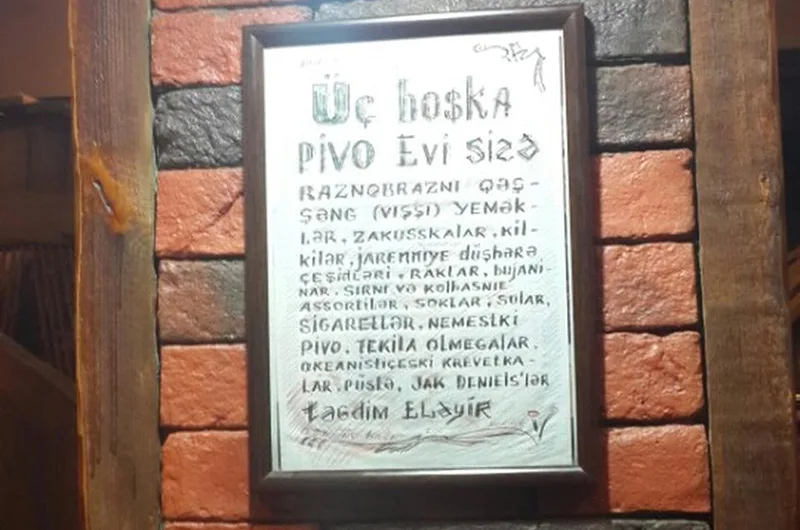 Üç boşka
pivo Evi sizə
RAZNOBRAZNI QƏŞ-
ŞƏNG (VIŞŞI) YEMƏK-
LƏR, ZAKUSSKALAR, KIL-
kilər, jarennıye düşbərə
çEŞİDLƏRİ, RAKLAR, bujANİ-
NAR, SIRNI və KOLbASNIE
ASSORTİLƏR, SOKLAR, SULAR,
SİGARETLƏR, NEMESIKI
PİVO, TEKİLA OLMEGALAR,
OKEANİSTİÇESKİ KREVETKA-
LAR, PÜSTƏ, JAK DENIELS'LƏR
təqdim ELəyİR